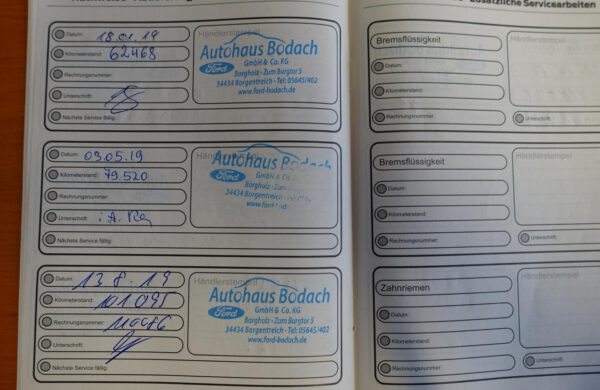 Zusätzliche Servicearbeiten
Datum: 18.01.19
Kilometerstand: 62468
Rechnungsnummer:
Unterschrift:
Nächste Service fällig:
Händlerstempel
Autohaus Bodach
GmbH & Co. KG
Ford
Borgholz · Zum Burgtor 5
34434 Borgentreich · Tel: 05645/402
www.ford-bodach.de
Datum: 03.05.19
Kilometerstand: 79520
Rechnungsnummer:
Unterschrift: i.A.
Nächste Service fällig:
Händlerstempel
Autohaus Bodach
GmbH & Co.
Ford
Borgholz · Zum
34434 Borgentreich ·
Datum: 13.8.19
Kilometerstand: 101095
Rechnungsnummer:
Unterschrift:
Nächste Service fällig:
Händlerstempel
Autohaus Bodach
GmbH & Co. KG
Ford
Borgholz · Zum Burgtor 5
34434 Borgentreich · Tel: 05645/402
www.ford-bodach.de
Bremsflüssigkeit
Datum:
Kilometerstand:
Rechnungsnummer:
Händlerstempel
Unterschrift:
Bremsflüssigkeit
Datum:
Kilometerstand:
Rechnungsnummer:
Händlerstempel
Unterschrift:
Zahnriemen
Datum:
Kilometerstand:
Rechnungsnummer:
Händlerstempel
Unterschrift: